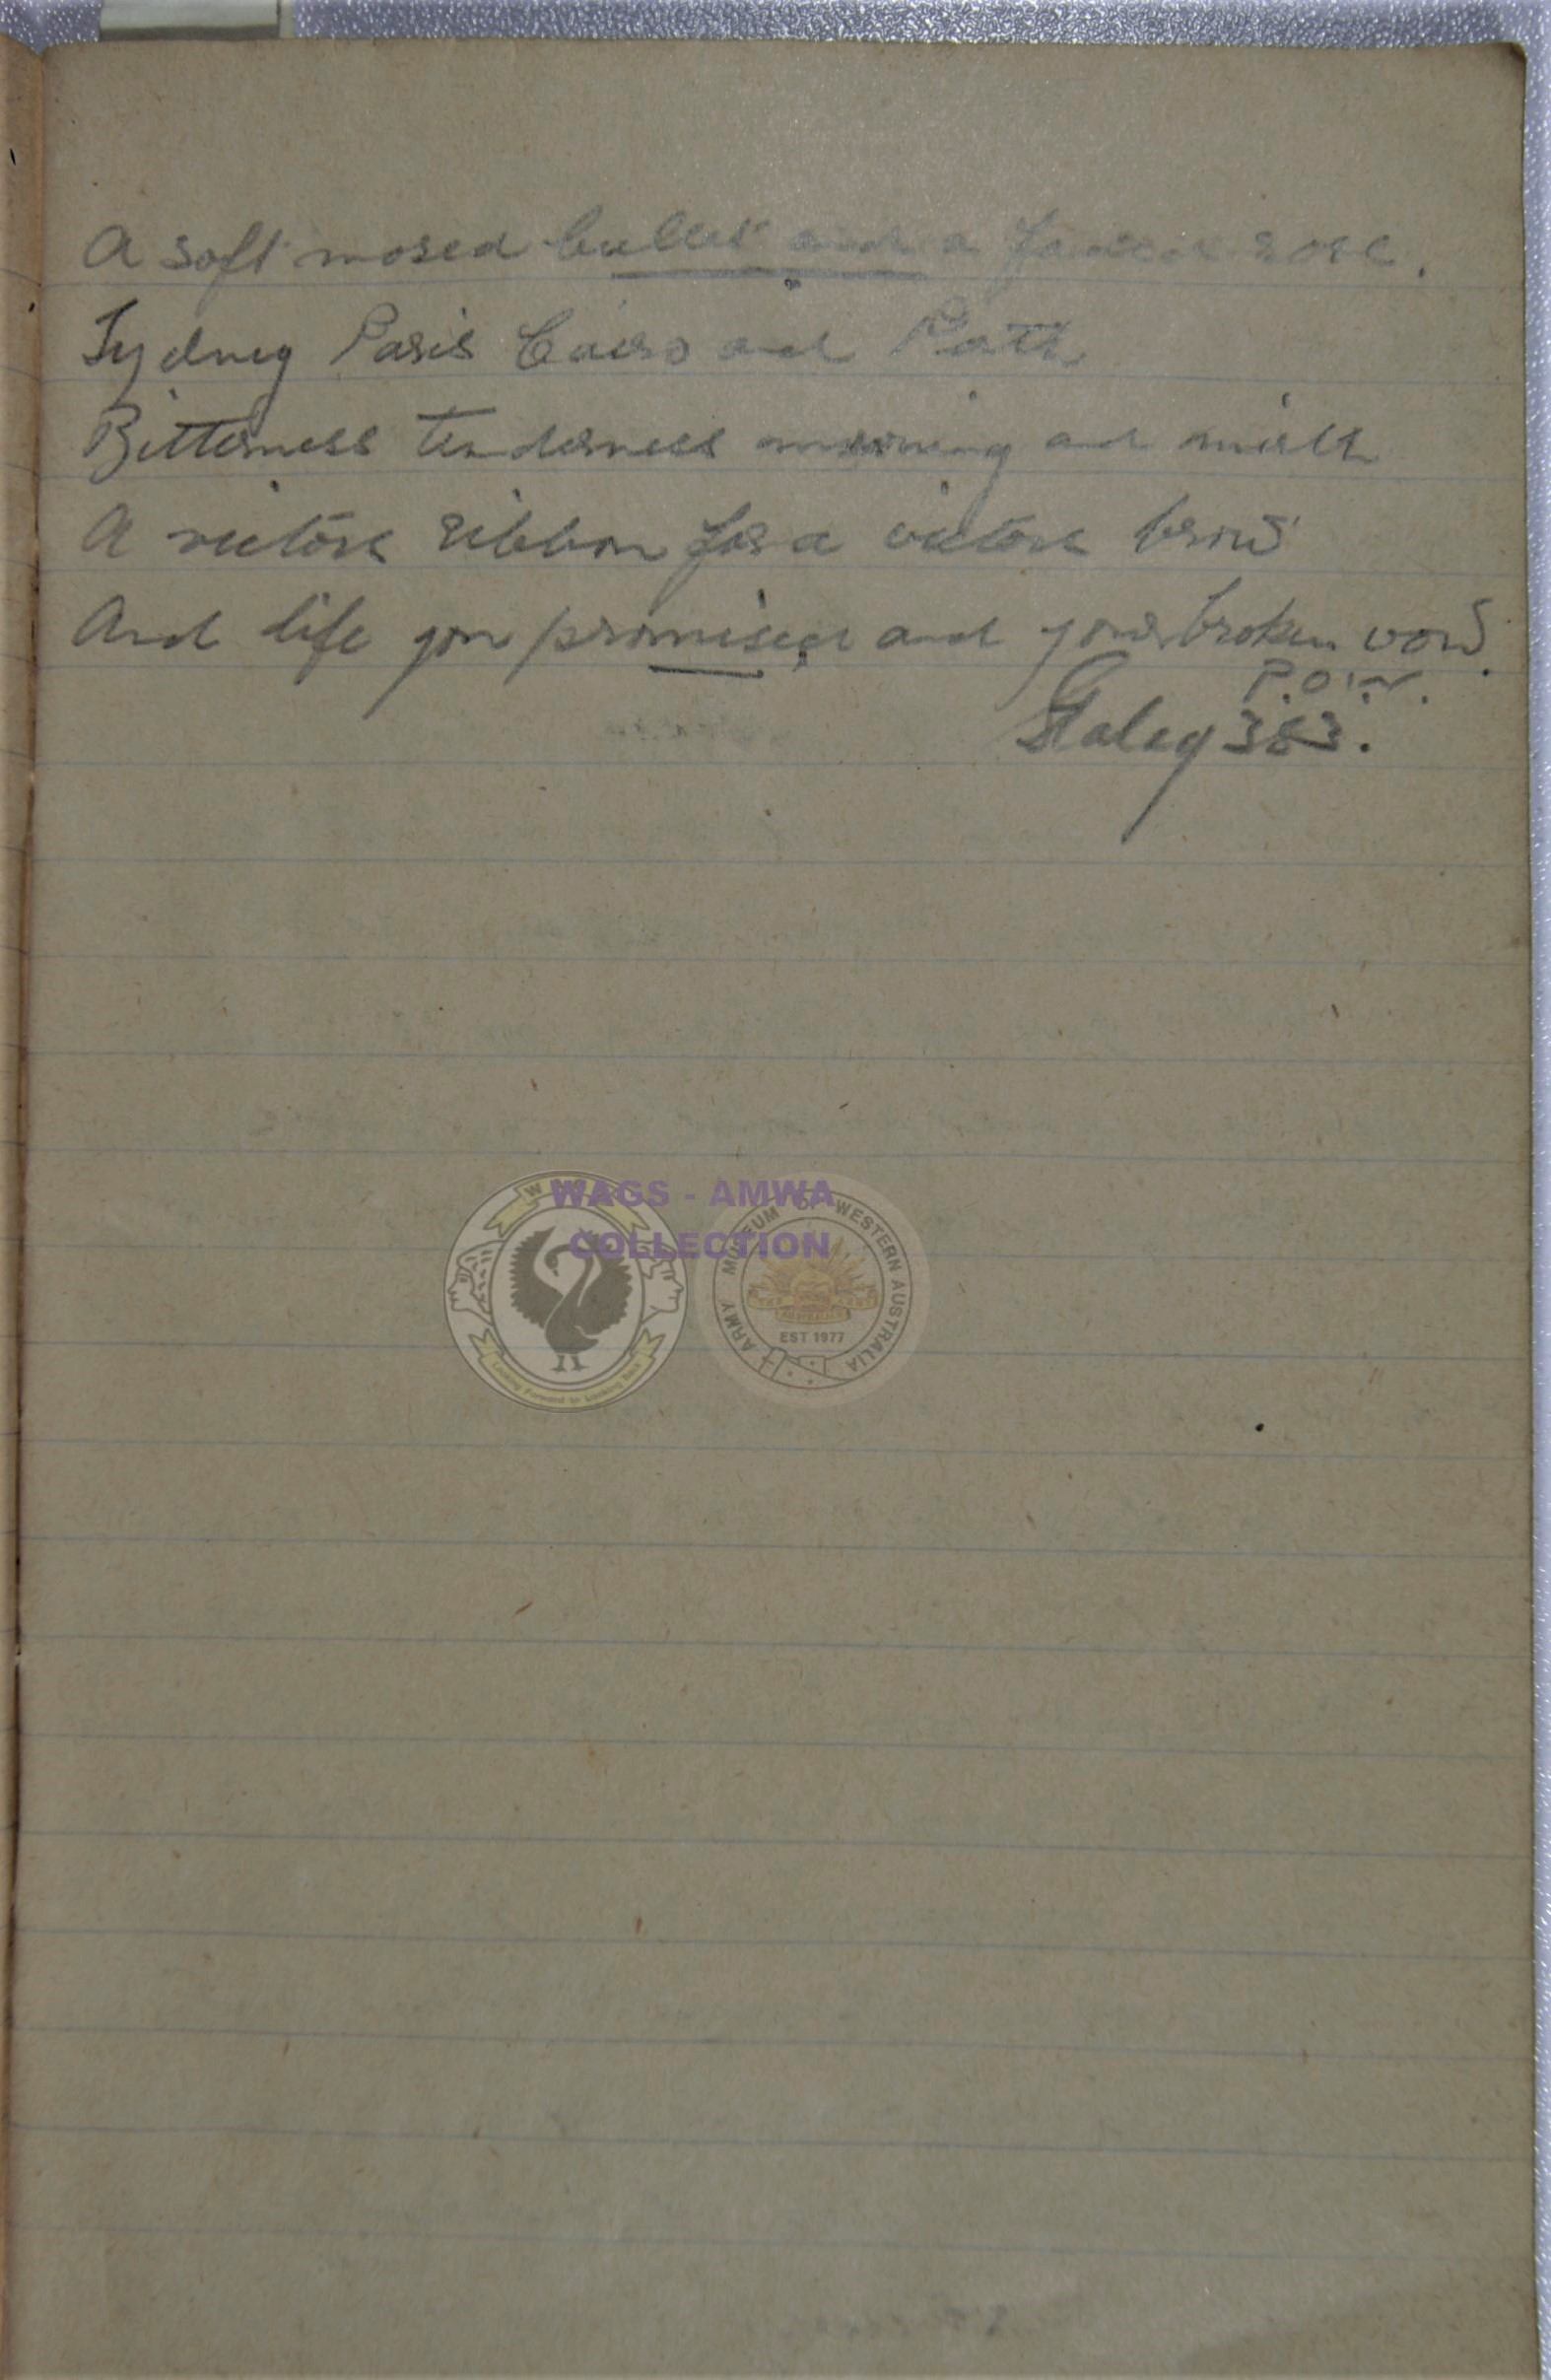 A soft nosed bullet and a faded rose.
Sydney Paris Cairo and Perth
Bitterness tenderness mourning and mirth
A victors ribbon for a victors brow
And life you promised and your broken vow.
P.O.W.
Stalag 383.
WAGS - AMWA
COLLECTION
ARMY MUSEUM OF WESTERN AUSTRALIA
EST 1977
Looking Forward to Looking Back